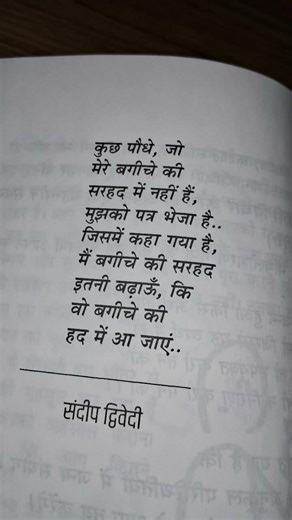 कुछ पौधे, जो
मेरे बगीचे की
सरहद में नहीं हैं,
मुझको पत्र भेजा है..
जिसमें कहा गया है,
मैं बगीचे की सरहद
इतनी बढ़ाऊँ, कि
वो बगीचे की
हद में आ जाएं..
संदीप द्विवेदी